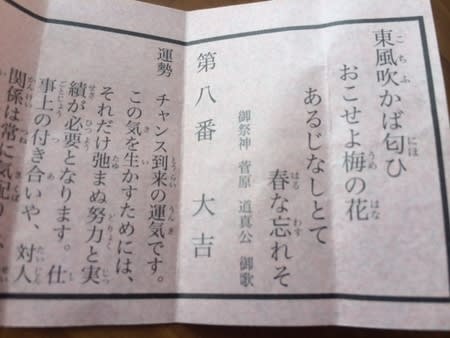 東風吹かば匂ひ
おこせよ梅の花
あるじなしとて
春な忘れそ
御祭神 菅原 道真公 御歌
第八番 大吉
運勢 チャンス到来の運気です。
この気を生かすためには、
それだけ弛まぬ努力と実
績が必要となります。仕
事上の付き合いや、対人
関係は常に気配り